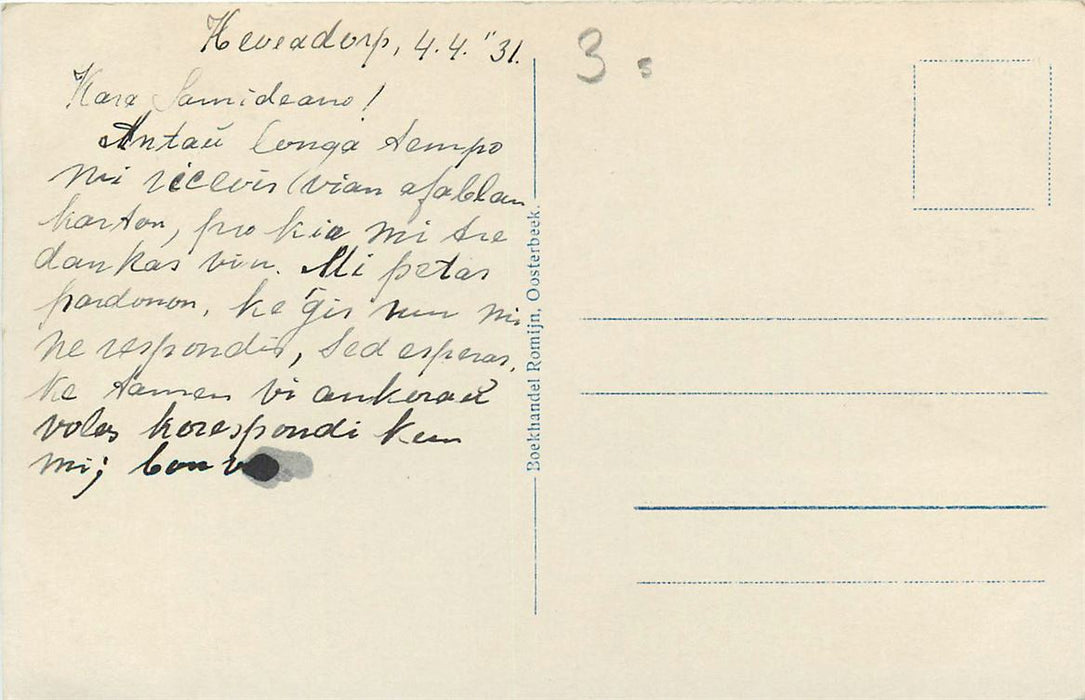 Heveadorp, 4.4."31.
Kara Samideano!
Antaŭ longa tempo
mi ricevis vian afablan
karton, pro kia mi tre
dankas vin. Mi petas
pardonon, ke ĝis nun mi
ne respondis, sed esperas,
ke tamen vi ankoraŭ
volas korespondi kun
mi; bonv
3 s
Boekhandel Romijn, Oosterbeek.